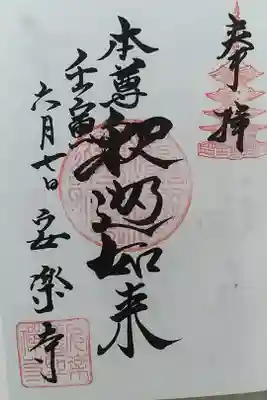 奉拝
本尊 釈迦如来
壬寅
六月七日 安楽寺